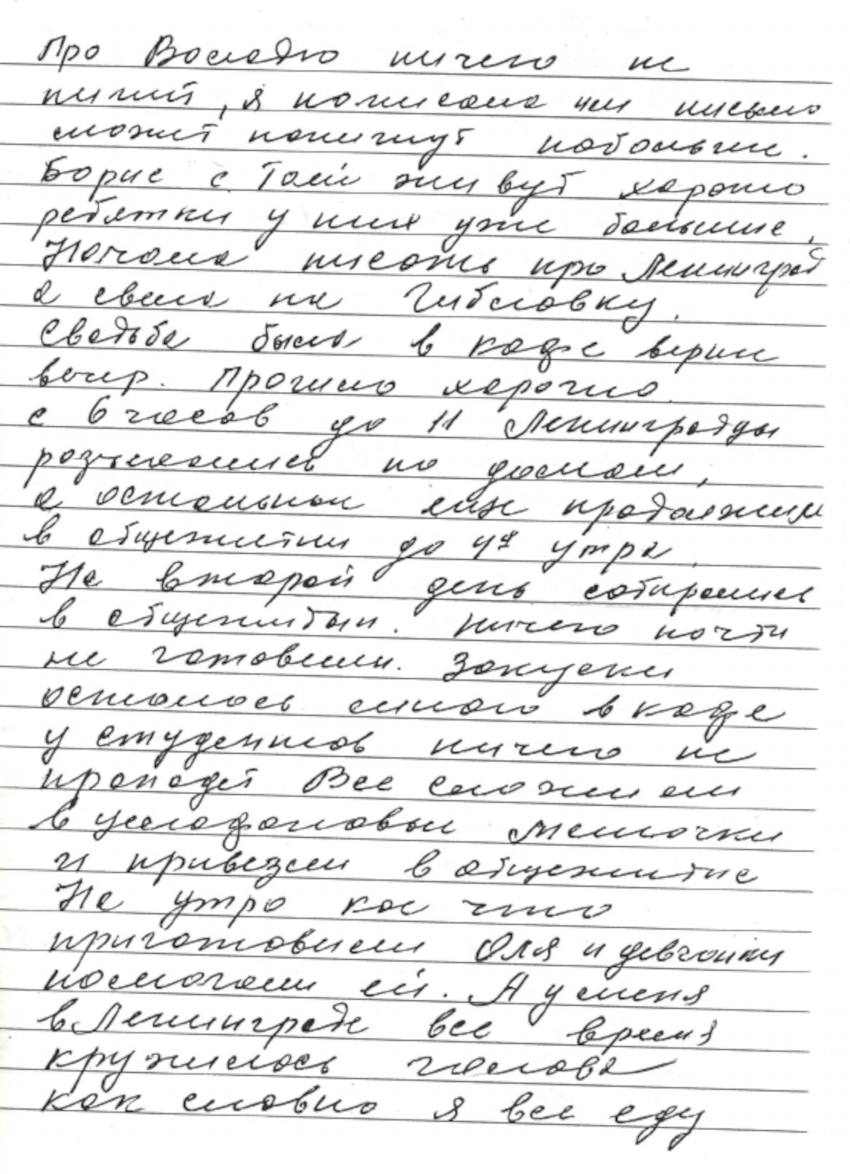 Про Володю ничего не
пишит, я написала им письмо
может напишут побольше.
Борис с Таей живут хорошо
ребятки у них уже большие,
Начала писать про Ленинград
а свела на Гибловку.
Свадьба была в кафе верш
вечер. Прошло хорошо
с 6 часов до 11 Ленинградцы
разъехались по домам,
а остальные еще продолжили
в общежитии до 4х утра.
На второй день собирались
в общежитьи. Ничего почти
не готовили. Закуски
осталось много в кафе
у студентов ничего не
пропадет Все сложили
в целофановые мешочки
и привезли в общежитие
На утро кое что
приготовили Оля и девчонки
помогали ей. А у меня
в Ленинграде все время
кружилось голова
как словно я все еду